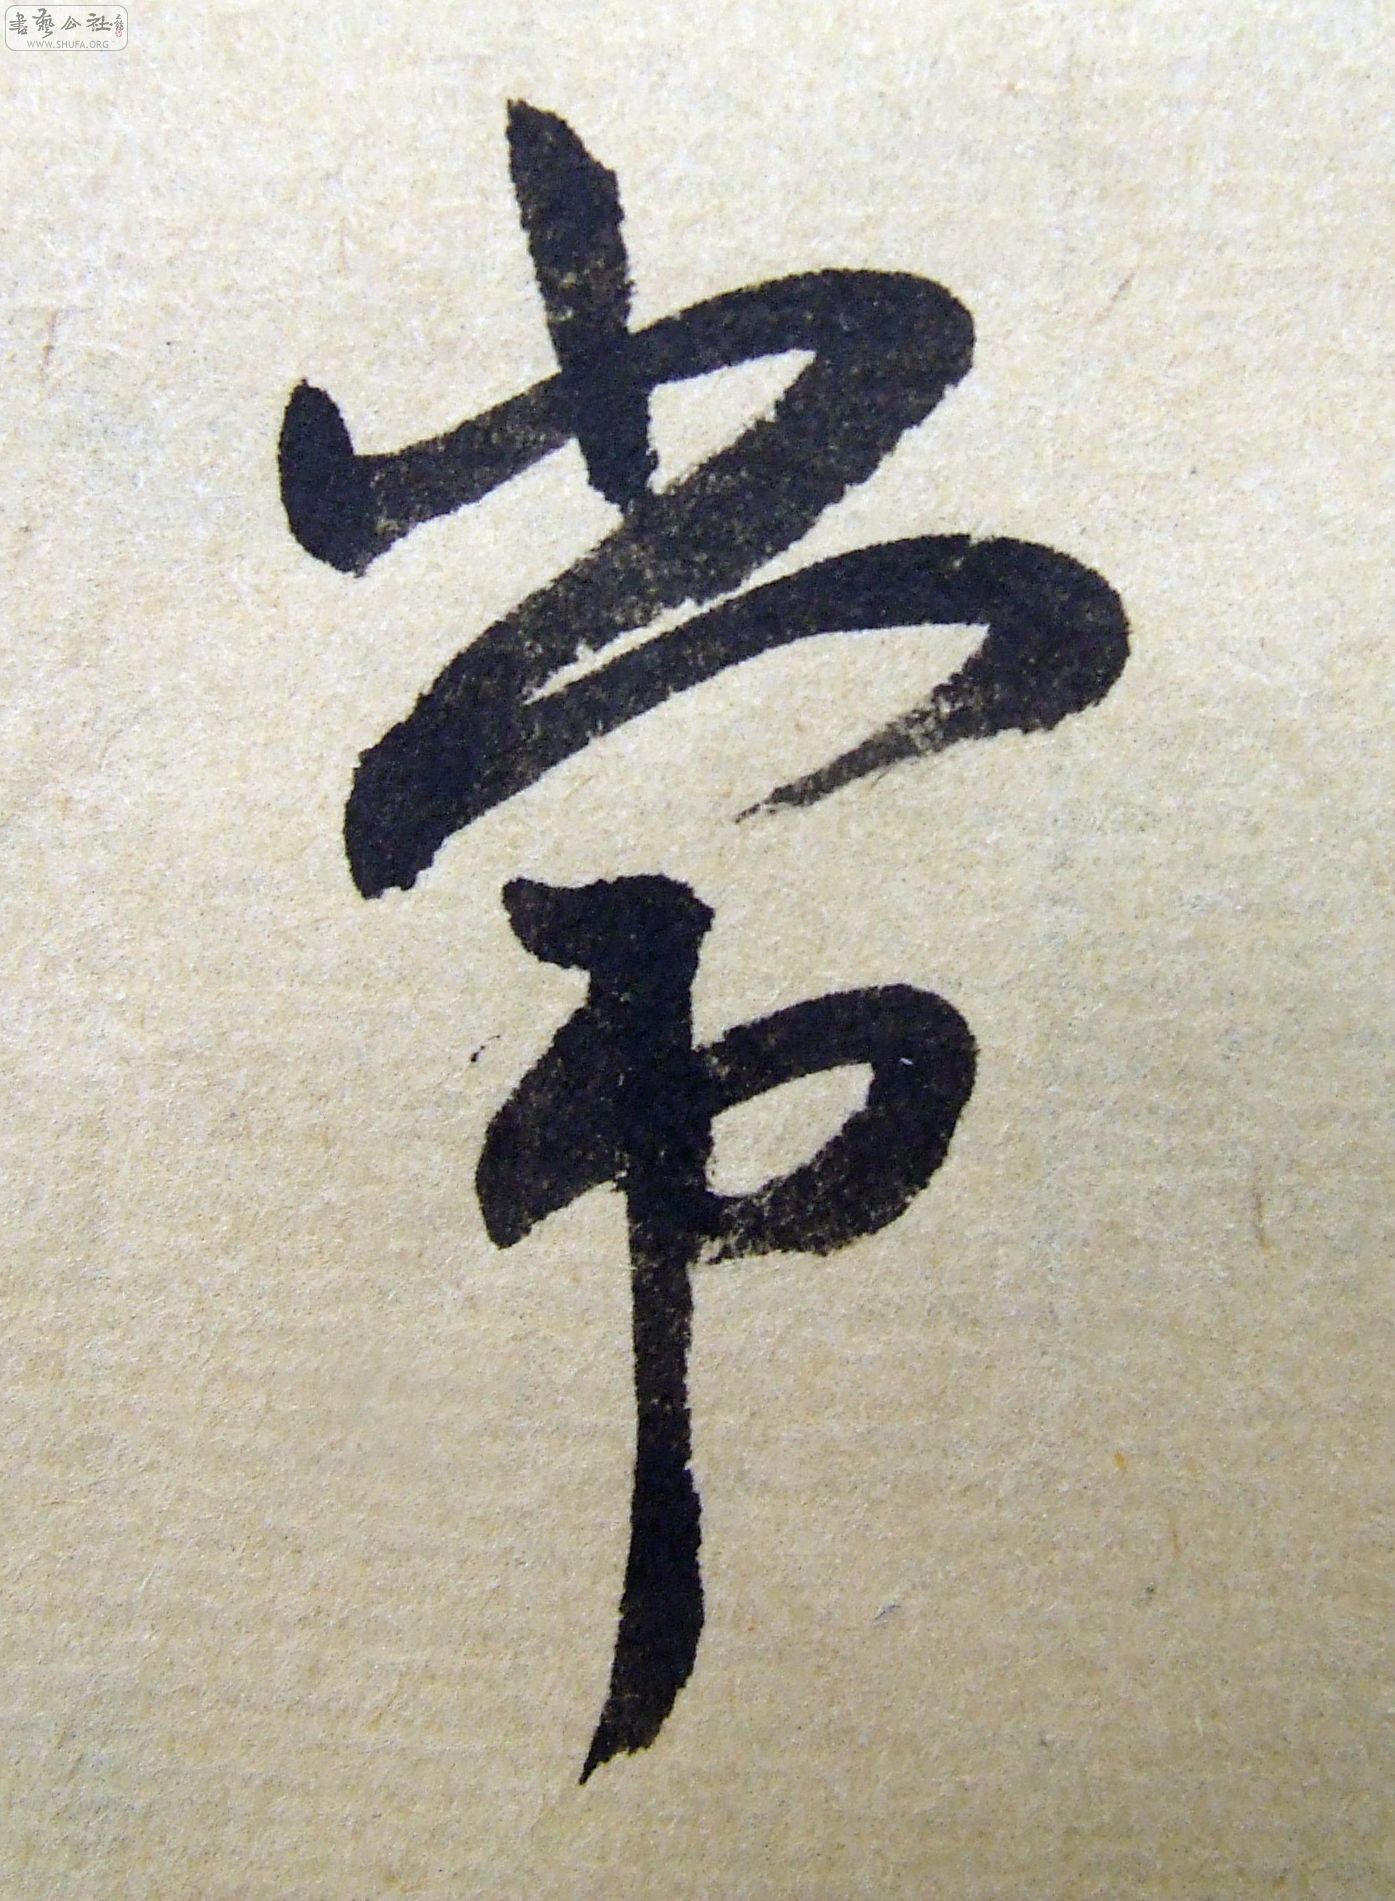 書藝公社
WWW.SHUFA.ORG
常